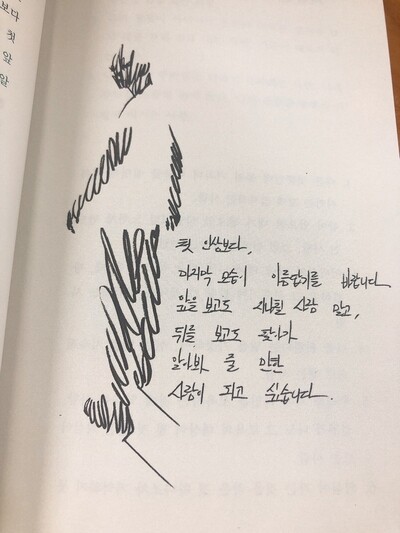 보다
첫
앞
첫 인상보다,
마지막 모습이 아름답기를 바랍니다.
앞을 보고도 지나칠 사람 말고,
뒤를 보고도
알아봐 줄 만한
사람이 되고 싶습니다.